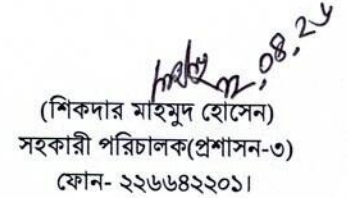 (শিকদার মাহমুদ হোসেন)
সহকারী পরিচালক(প্রশাসন-৩)
ফোন- ২২৬৬৪২২০১।